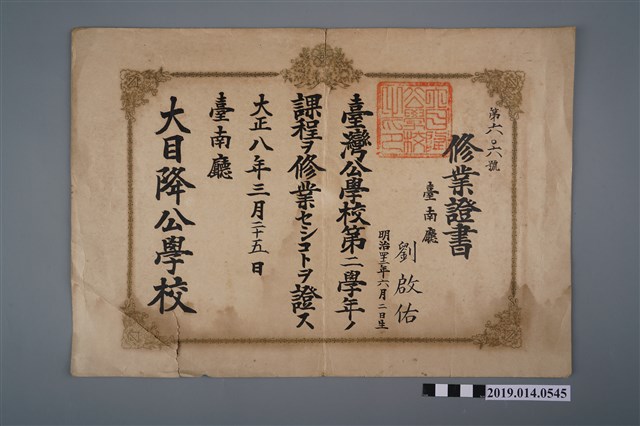 第六〇六號
修業證書
臺南廳
劉啟佑
明治四三年六月二日生
臺灣公學校第二學年ノ
課程ヲ修業セシコトヲ證ス
大正八年三月二十五日
臺南廳
大目降公學校
2019.014.0545